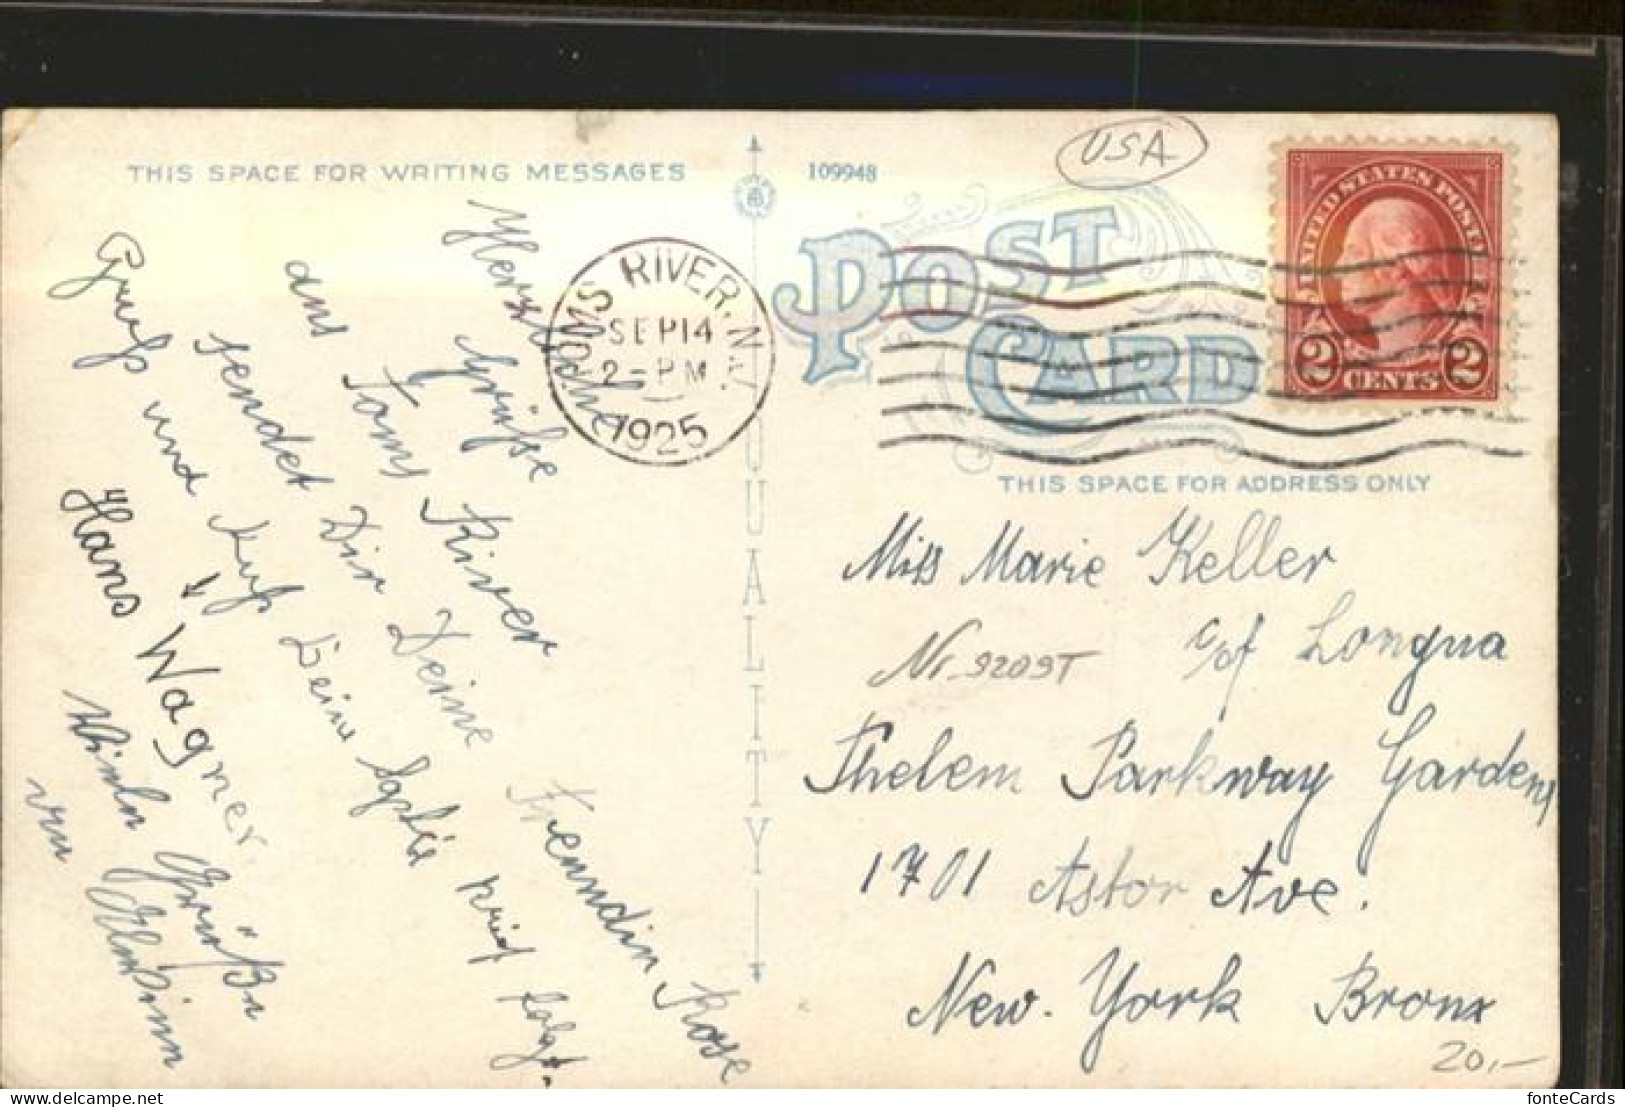 THIS SPACE FOR WRITING MESSAGES
109948
USA
POST
CARD
UNITED STATES POSTAGE
2 CENTS 2
TOMS RIVER, N.J.
SEP 14
2-PM
1925
QUALITY
Herzliche
Grüße
aus Toms River
sendet Dir Deine Freundin Rose
Gruß und Kuß Deine
Brief folgt.
"Hans Wagner"
Grüße
von
THIS SPACE FOR ADDRESS ONLY
Miss Marie Keller
c/of Longua
Nr. 9209T
Thelem Parkway Gardens
1701 Astor Ave.
New-York Bronx
20,-
fonteCards